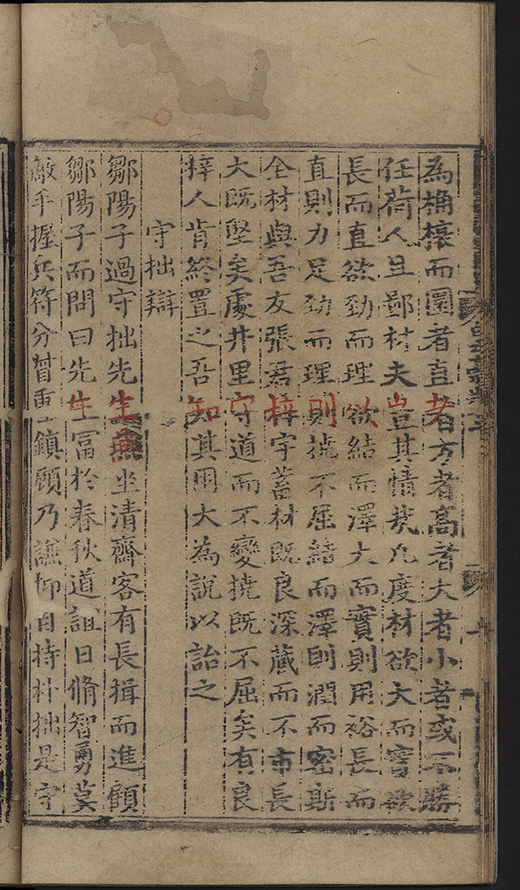 為桷榱而圜者直者方者高者大者小者或不勝
任荷人且鄙材夫豈其情㢤凢度材欲大而實欲
長而直欲勁而理欲結而澤大而實則用裕長而
直則力足勁而理則撓不屈結而澤則潤而密斯
全材與吾友張君梓字蓄材既良深蔵而不市長
大既堅矣處井里守道而不變撓既不屈矣有良
梓人肯終置之吾知其用大為說以詒之
守拙辯
鄒陽子過守拙先生燕坐清齋客有長揖而進顧
鄒陽子而問曰先生富於春秋道誼日脩智勇莫
敵手握兵符分督重鎮顧乃謙抑自持朴拙是守